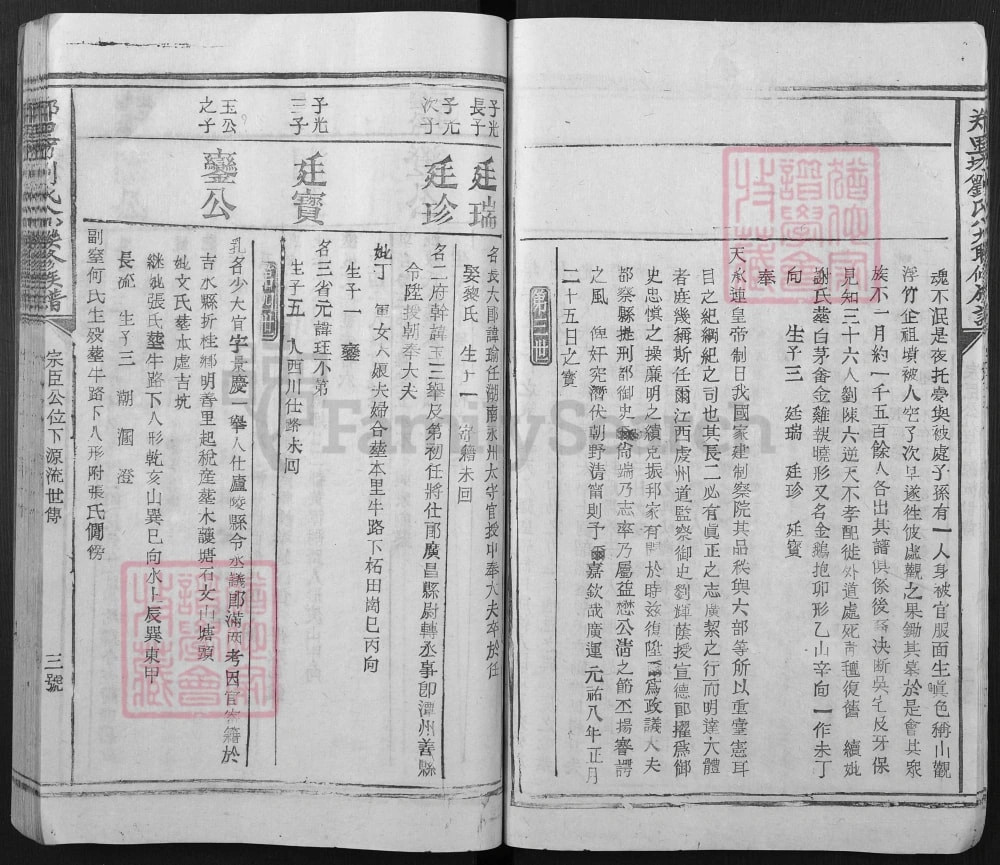 魂不泯是夜托夢與被處子孫有一人身被官服面生嗔色稱山觀
浮竹企祖墳被人空了次早遂徃彼處觀之果鋤其墓於是會其眾
族不一月約一千五百餘人各出其譜俱係後裔决断吳乞及牙保
見知三十六人劉陳六逆天不孝配徙外道處死靑氊復舊 續妣
謝氏𦵏白茅畬金雞報曉形又名金鵝抱卵形乙山辛向一作未丁
向 生子三 廷瑞 廷珍 廷寳
奉
天承運皇帝制曰我國家建制察院其品秩與六部等所以重臺憲耳
目之紀綱紀之司也其長二必有眞正之志廣絜之行而明達大體
者庶幾稱斯任爾江西虔州道監察御史劉輝蔭授宣德郎擢爲御
史忠愼之操廉明之績克振邦家有聞於時兹復陞 爲政議大夫
都察縣提刑都御史 尙端乃志率乃屬益懋公淸之節丕揚謇諤
之風 俾奸究濳伏朝野淸甯則予 嘉欽哉廣運 元祐八年正月
二十五日之寶
第三世
子光長子
廷瑞
名長六郎諱瑜任湖南永州太守官授中奉大夫卒於任
娶黎氏 生子一 寄籍未回
子光次子
廷珍
名二府幹諱玉三舉及第初任將仕郎廣昌縣尉轉丞事卽潭州善縣
令陞授朝奉大夫
妣丁 軍女人娘夫婦合𦵏本里牛路下柘田崗巳丙向
生子一 鑾
子光三子
廷寶
名三省元諱玨不第
生子五 入西川仕路未回
第四世
玉公之子
鑾公
乳名少大官字景慶一舉人仕廬陵縣令承議郎滿兩考因官寄籍於
吉水縣折桂鄉明善里起稅産𦵏木護塘石女山塘頭
妣文氏𦵏本處吉坑
継妣張氏𦵏牛路下人形乾亥山巽巳向水上辰巽東甲
長流 生子三 潮 漍 澄
副室何氏生殁𦵏牛路下人形附張氏側傍
宗臣公位下源流世傳
三號
FamilySearch